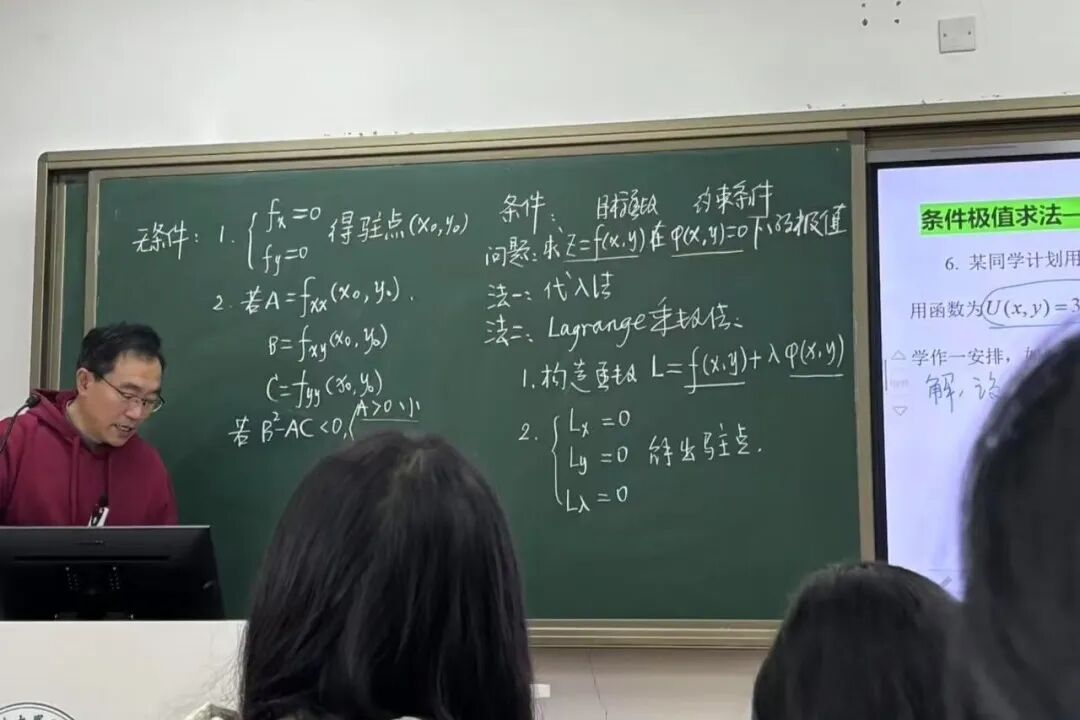 无条件: 1. { fx=0
fy=0
得驻点(x₀,y₀)
2. 若A=fxx(x₀,y₀).
B=fxy(x₀,y₀)
C=fyy(x₀,y₀)
若 B²-AC<0, { A>0, 小
条件: 目标函数 约束条件
问题: 求 z=f(x,y)在φ(x,y)=0下的极值
法一: 代入法
法二: Lagrange乘数法:
1. 构造函数 L=f(x,y)+λφ(x,y)
2. { Lx=0
Ly=0 解出驻点.
Lλ=0
条件极值求法一
6. 某同学计划用
用函数为U(x,y)=3
学作一安排,
解: 设